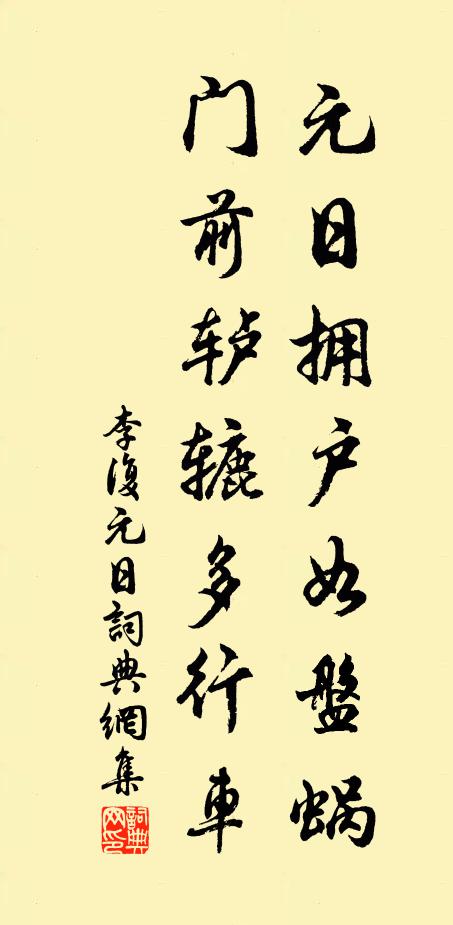 元日拥户如盤蜗
门前轳辘多行車
李復元日詞典網集
詞典网印